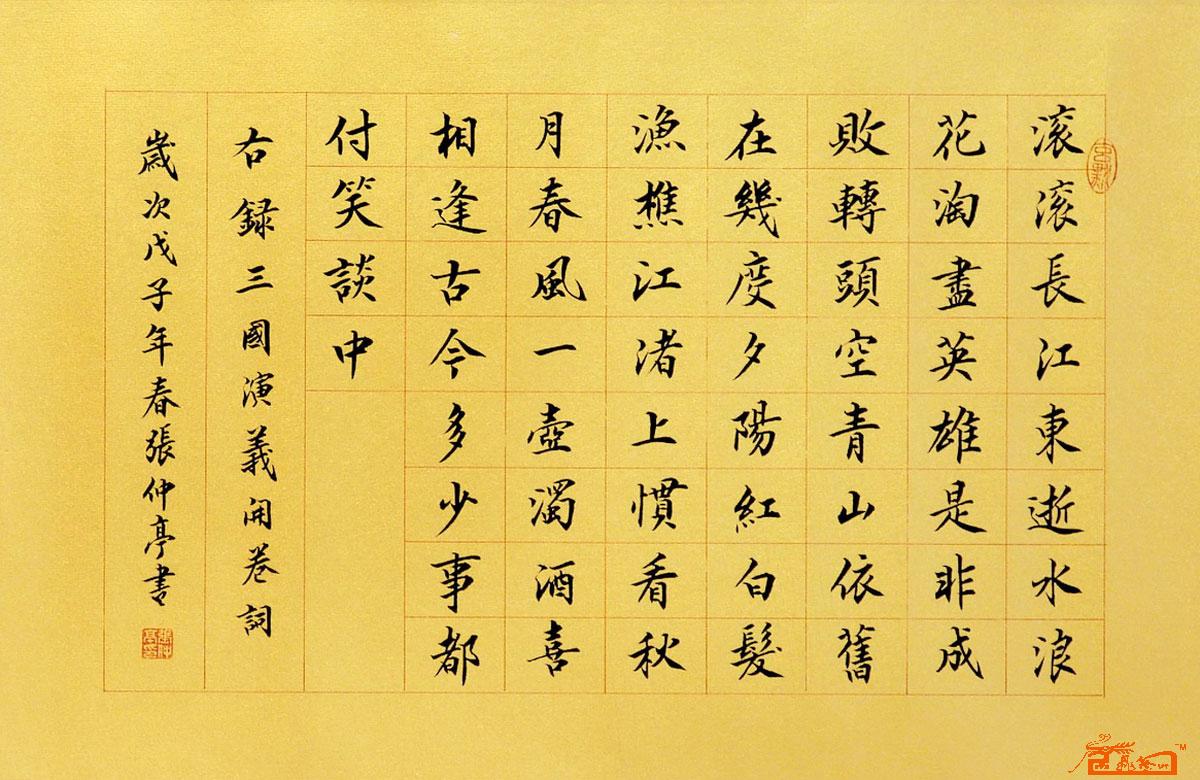 滚滚長江東逝水浪
花淘盡英雄是非成
敗轉頭空青山依舊
在幾度夕陽紅白髮
漁樵江渚上慣看秋
月春風一壺濁酒喜
相逢古今多少事都
付笑談中
右録三國演義開卷詞
歲次戊子年春張仲亭書